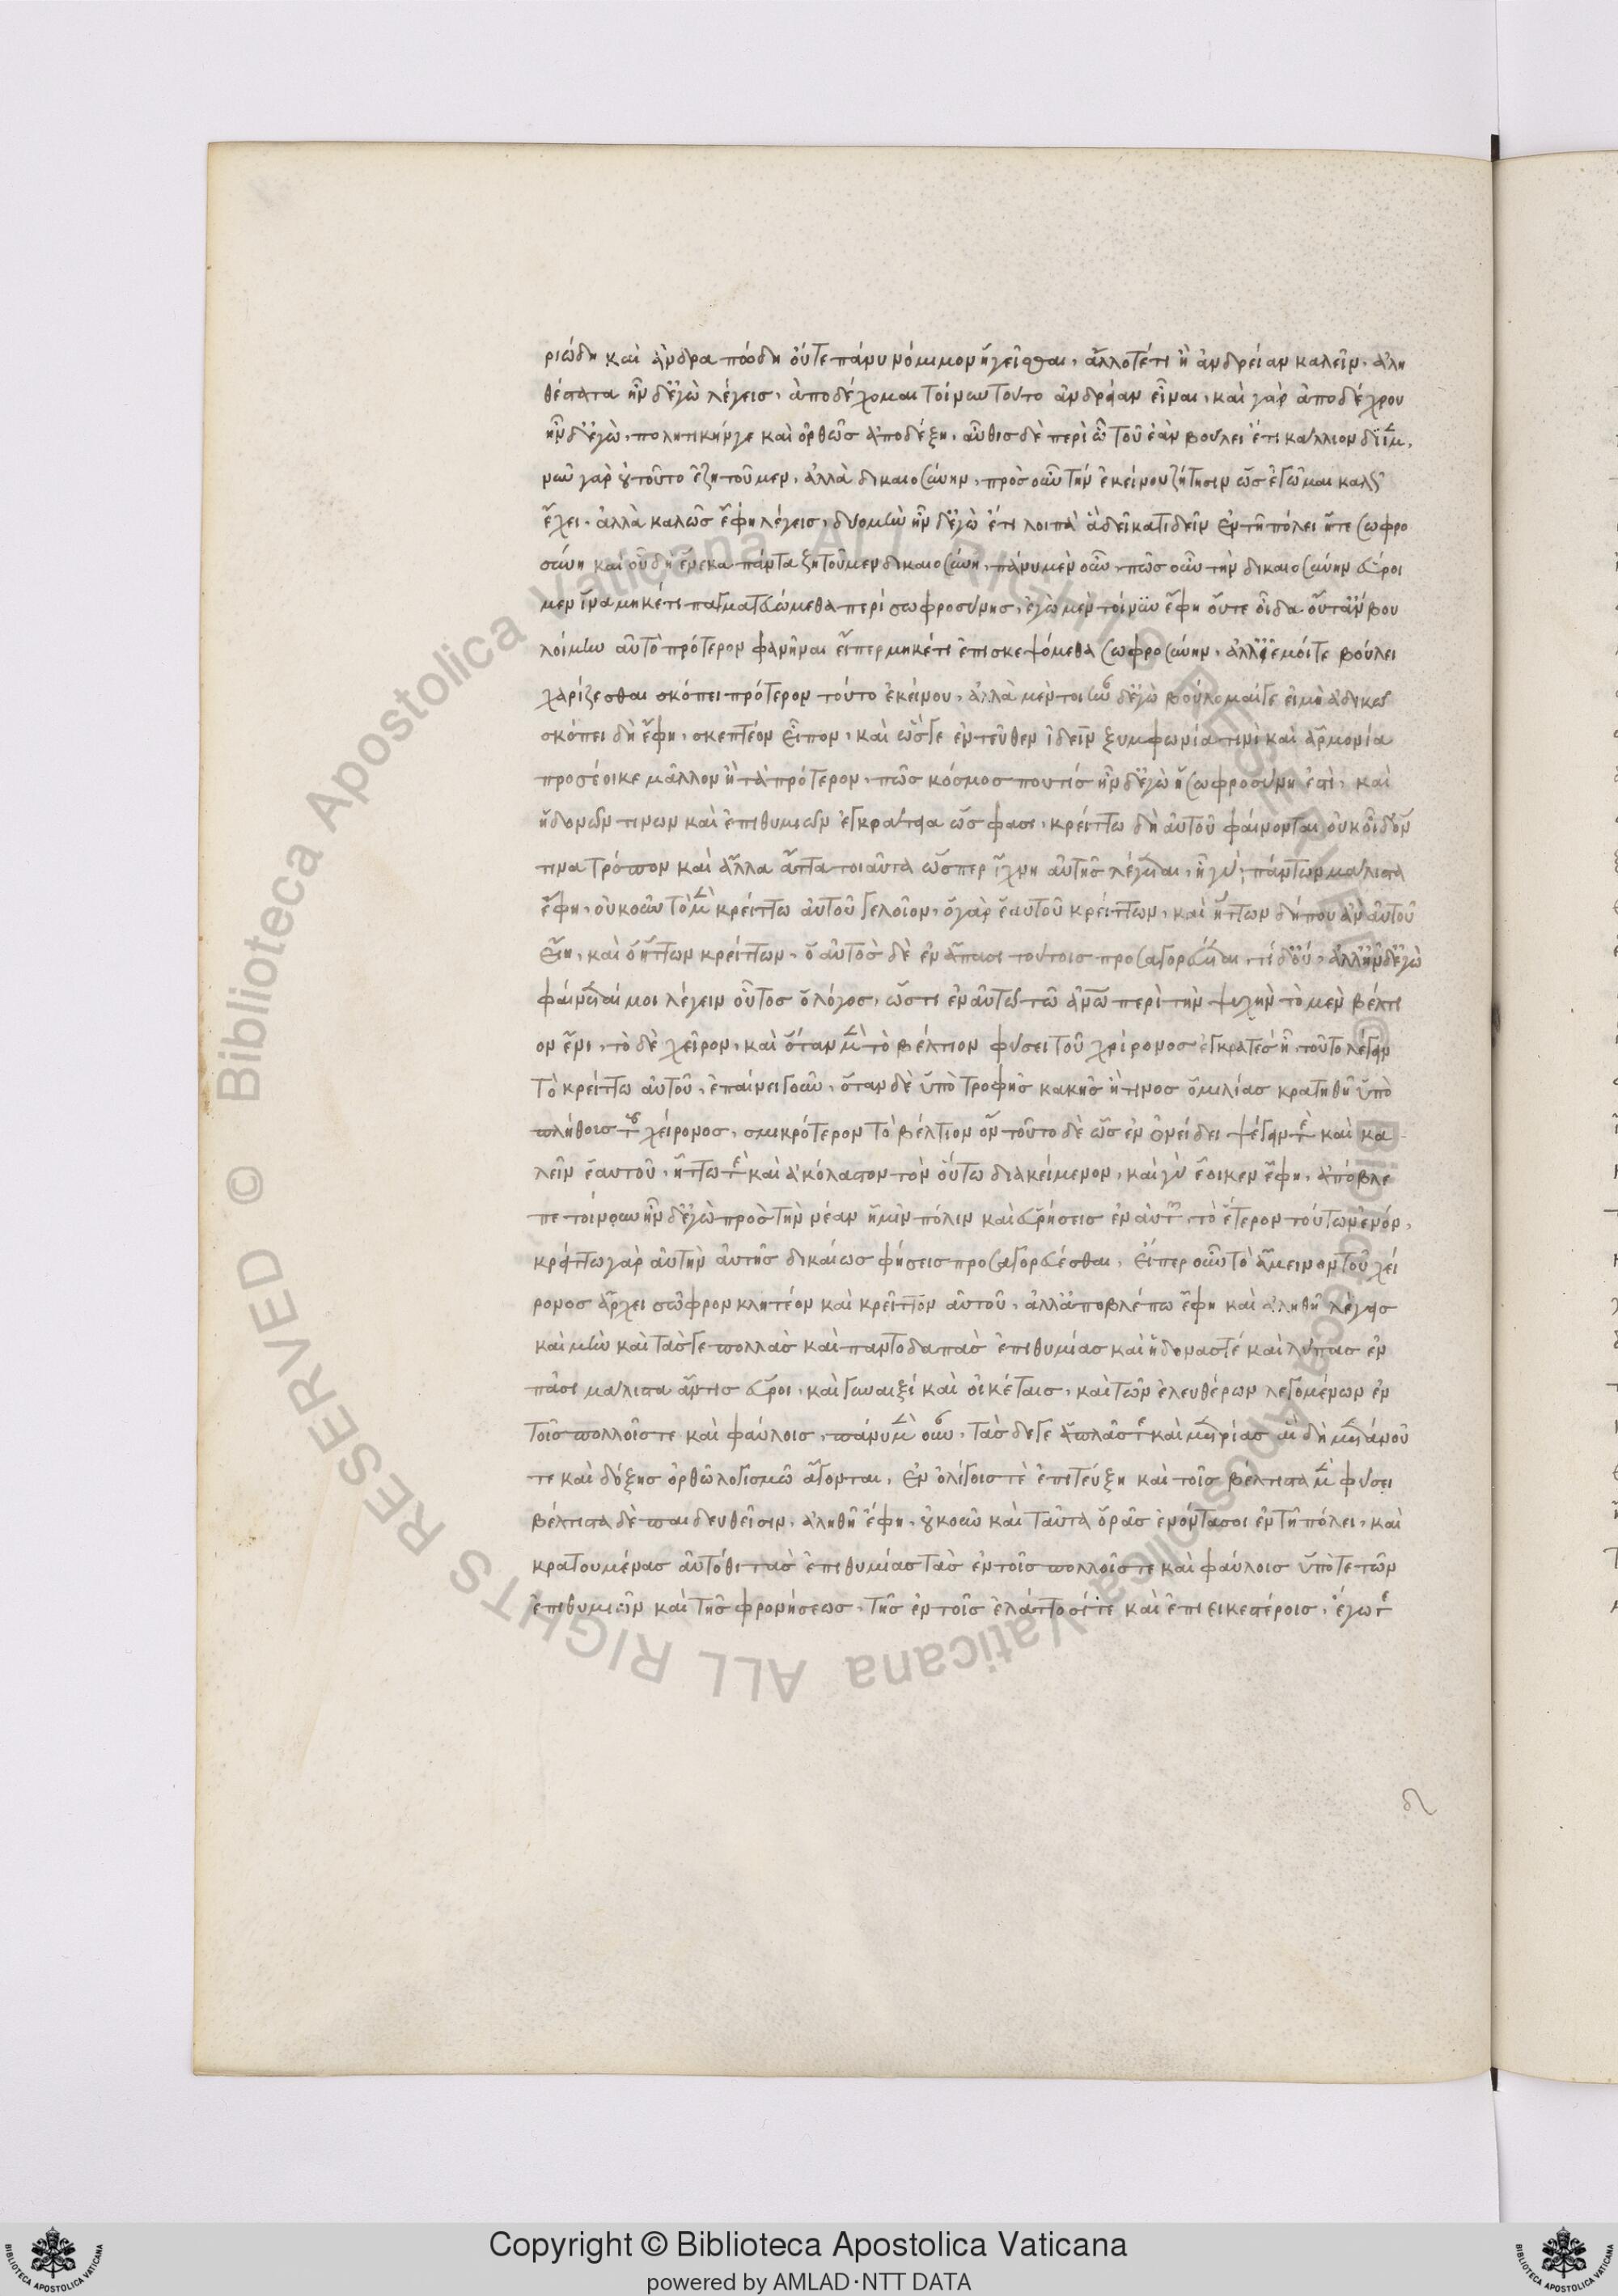 ριώδη καὶ ἀνδραποδώδη οὔτε πάνυ νόμιμον ἡγεῖσθαι, ἄλλό τέ τι ἢ ἀνδρείαν καλεῖν. ἀλη
θέστατα ἦν δ' ἐγὼ λέγεις. ἀποδέχομαι τοίνυν τοῦτο ἀνδρείαν εἶναι. καὶ γὰρ ἀποδέχου
ἦν δ' ἐγὼ, πολιτικήν γε καὶ ὀρθῶς ἀποδέξη. αὖθις δὲ περὶ αὐτοῦ ἐὰν βούλει ἔτι κάλλιον δίιμεν.
νῦν γὰρ οὐ τοῦτο ἐζητοῦμεν, ἀλλὰ δικαιοσύνην. πρὸς οὖν τὴν ἐκείνου ζήτησιν ὡς ἐγᾦμαι καλῶς
ἔχει. ἀλλὰ καλῶς ἔφη λέγεις. δύο μὴν ἦν δ' ἐγὼ ἔτι λοιπὰ ἃ δεῖ κατιδεῖν ἐν τῆ πόλει ἥτε σωφρο
σύνη καὶ οὗ δὴ ἕνεκα πάντα ζητοῦμεν δικαιοσύνη. πάνυ μὲν οὖν. πῶς οὖν τὴν δικαιοσύνην εὕροι
μεν ἵνα μηκέτι πραγματευώμεθα περὶ σωφροσύνης. ἐγὼ μὲν τοίνυν ἔφη οὔτε οἶδα οὔτ' ἂν βου
λοίμην αὐτὸ πρότερον φανῆναι εἴπερ μηκέτι ἐπισκεψόμεθα σωφροσύνην. ἀλλ' εἰ ἐμοί τε βούλει
χαρίζεσθαι σκόπει πρότερον τοῦτο ἐκείνου. ἀλλὰ μέντοι ἦν δ' ἐγὼ βούλομαί γε εἰ μὴ ἀδικῶ
σκόπει δὴ ἔφη. σκεπτέον εἶπον. καὶ ὥς γε ἐντεῦθεν ἰδεῖν ξυμφωνία τινὶ καὶ ἁρμονία
προσέοικε μᾶλλον ἢ τὰ πρότερον. πῶς κόσμος πού τις ἦν δ' ἐγὼ ἡ σωφροσύνη ἐστὶ, καὶ
ἡδονῶν τινων καὶ ἐπιθυμιῶν ἐγκράτεια ὥς φασι. κρείττω δὴ αὑτοῦ φαίνονται οὐκ οἶδ' ὃν
τινα τρόπον καὶ ἄλλα ἄττα τοιαῦτα ὥσπερ ἴχνη αὐτῆς λέγεται. ἦ γάρ; πάντων μάλιστα
ἔφη. οὐκοῦν τὸ μὲν κρείττω αὑτοῦ γελοῖον. ὁ γὰρ ἑαυτοῦ κρείττων, καὶ ἥττων δήπου ἂν αὑτοῦ
εἴη. καὶ ὁ ἥττων κρείττων. ὁ αὐτὸς δὲ ἐν ἅπασι τούτοις προσαγορεύεται. τί δ' οὔ. ἀλλ' ἦν δ' ἐγὼ
φαίνεταί μοι λέγειν οὗτος ὁ λόγος. ὥς τι ἐν αὐτῶ τῶ ἀνω περὶ τὴν ψυχὴν τὸ μὲν βέλτι
ον ἔνι, τὸ δὲ χεῖρον. καὶ ὅταν μὲν τὸ βέλτιον φύσει τοῦ χείρονος ἐγκρατὲς ἦ, τοῦτο λέγειν
τὸ κρείττω αὑτοῦ. ἐπαινεῖ γοῦν. ὅταν δὲ ὑπὸ τροφῆς κακῆς ἤ τινος ὁμιλίας κρατηθῆ ὑπὸ
πλήθους τοῦ χείρονος, σμικρότερον τὸ βέλτιον ὂν τοῦτο δὲ ὡς ἐν ὀνείδει ψέγειν τὲ καὶ κα
λεῖν ἑαυτοῦ, ἥττω τὲ καὶ ἀκόλαστον τὸν οὕτω διακείμενον. καὶ γὰρ ἔοικεν ἔφη. ἀπόβλε
πε τοίνυν ἦν δ' ἐγὼ πρὸς τὴν νέαν ἡμῖν πόλιν καὶ εὑρήσεις ἐν αὐτῆ τὸ ἕτερον τούτων ἐνόν.
κρείττω γὰρ αὐτὴν αὑτῆς δικαίως φήσεις προσαγορεύεσθαι, εἴπερ οὗ τὸ ἄμεινον τοῦ χεί
ρονος ἄρχει σῶφρον κλητέον καὶ κρεῖττον αὑτοῦ. ἀλλ' ἀποβλέπω ἔφη καὶ ἀληθῆ λέγεις
καὶ μὴν καὶ τάς γε πολλὰς καὶ παντοδαπὰς ἐπιθυμίας καὶ ἡδονάς τέ καὶ λύπας ἐν
πᾶσι μάλιστα ἄν τις εὕροι, καὶ γυναιξί καὶ οἰκέταις, καὶ τῶν ἐλευθέρων λεγομένων ἐν
τοῖς πολλοῖς τε καὶ φαύλοις. πάνυ μὲν οὖν. τὰς δέ γε ἁπλᾶς τε καὶ μετρίας αἳ δὴ μετὰ νοῦ
τε καὶ δόξης ὀρθῶ λογισμῶ ἄγονται, ἐν ὀλίγοις τὲ ἐπιτεύξη καὶ τοῖς βέλτιστα μὲν φύσει
βέλτιστα δὲ παιδευθεῖσιν. ἀληθῆ ἔφη. οὐκοῦν καὶ ταῦτα ὁρᾶς ἐνόντα σοι ἐν τῆ πόλει, καὶ
κρατουμένας αὐτόθι τὰς ἐπιθυμίας τὰς ἐν τοῖς πολλοῖς τε καὶ φαύλοις ὑπό τε τῶν
ἐπιθυμιῶν καὶ τῆς φρονήσεως, τῆς ἐν τοῖς ἐλάττοσί τε καὶ ἐπιεικεστέροις. ἔγωγε
© Biblioteca Apostolica Vaticana ALL RIGHTS RESERVED
Copyright © Biblioteca Apostolica Vaticana
powered by AMLAD·NTT DATA
BIBLIOTECA APOSTOLICA VATICANA
BIBLIOTECA APOSTOLICA VATICANA